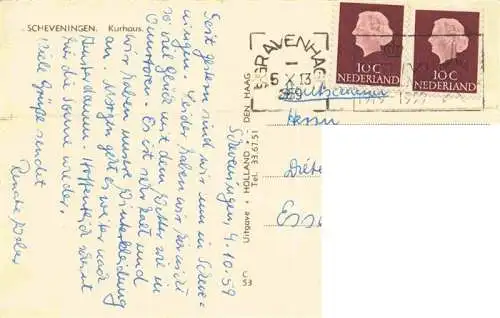 SCHEVENINGEN. Kurhaus.
Scheveningen, 4.10.59
Seit gestern sind wir nun in Scheve-
ningen. Leider haben wir hier nicht
so viel Glück mit dem Wetter wie in
Es ist sehr kalt und
wir haben unsere Winterkleidung
an. Morgen geht es weiter nach
Amsterdam. Hoffentlich scheint
für die Sonne wieder.
Viel Grüße sendet
Renate
Uitgave • HOLLAND • DEN HAAG
Tel. 33.67.51
C
53
'S GRAVENHAGE
5 X 13
1959
10 C
NEDERLAND
10 C
NEDERLAND
Herrn